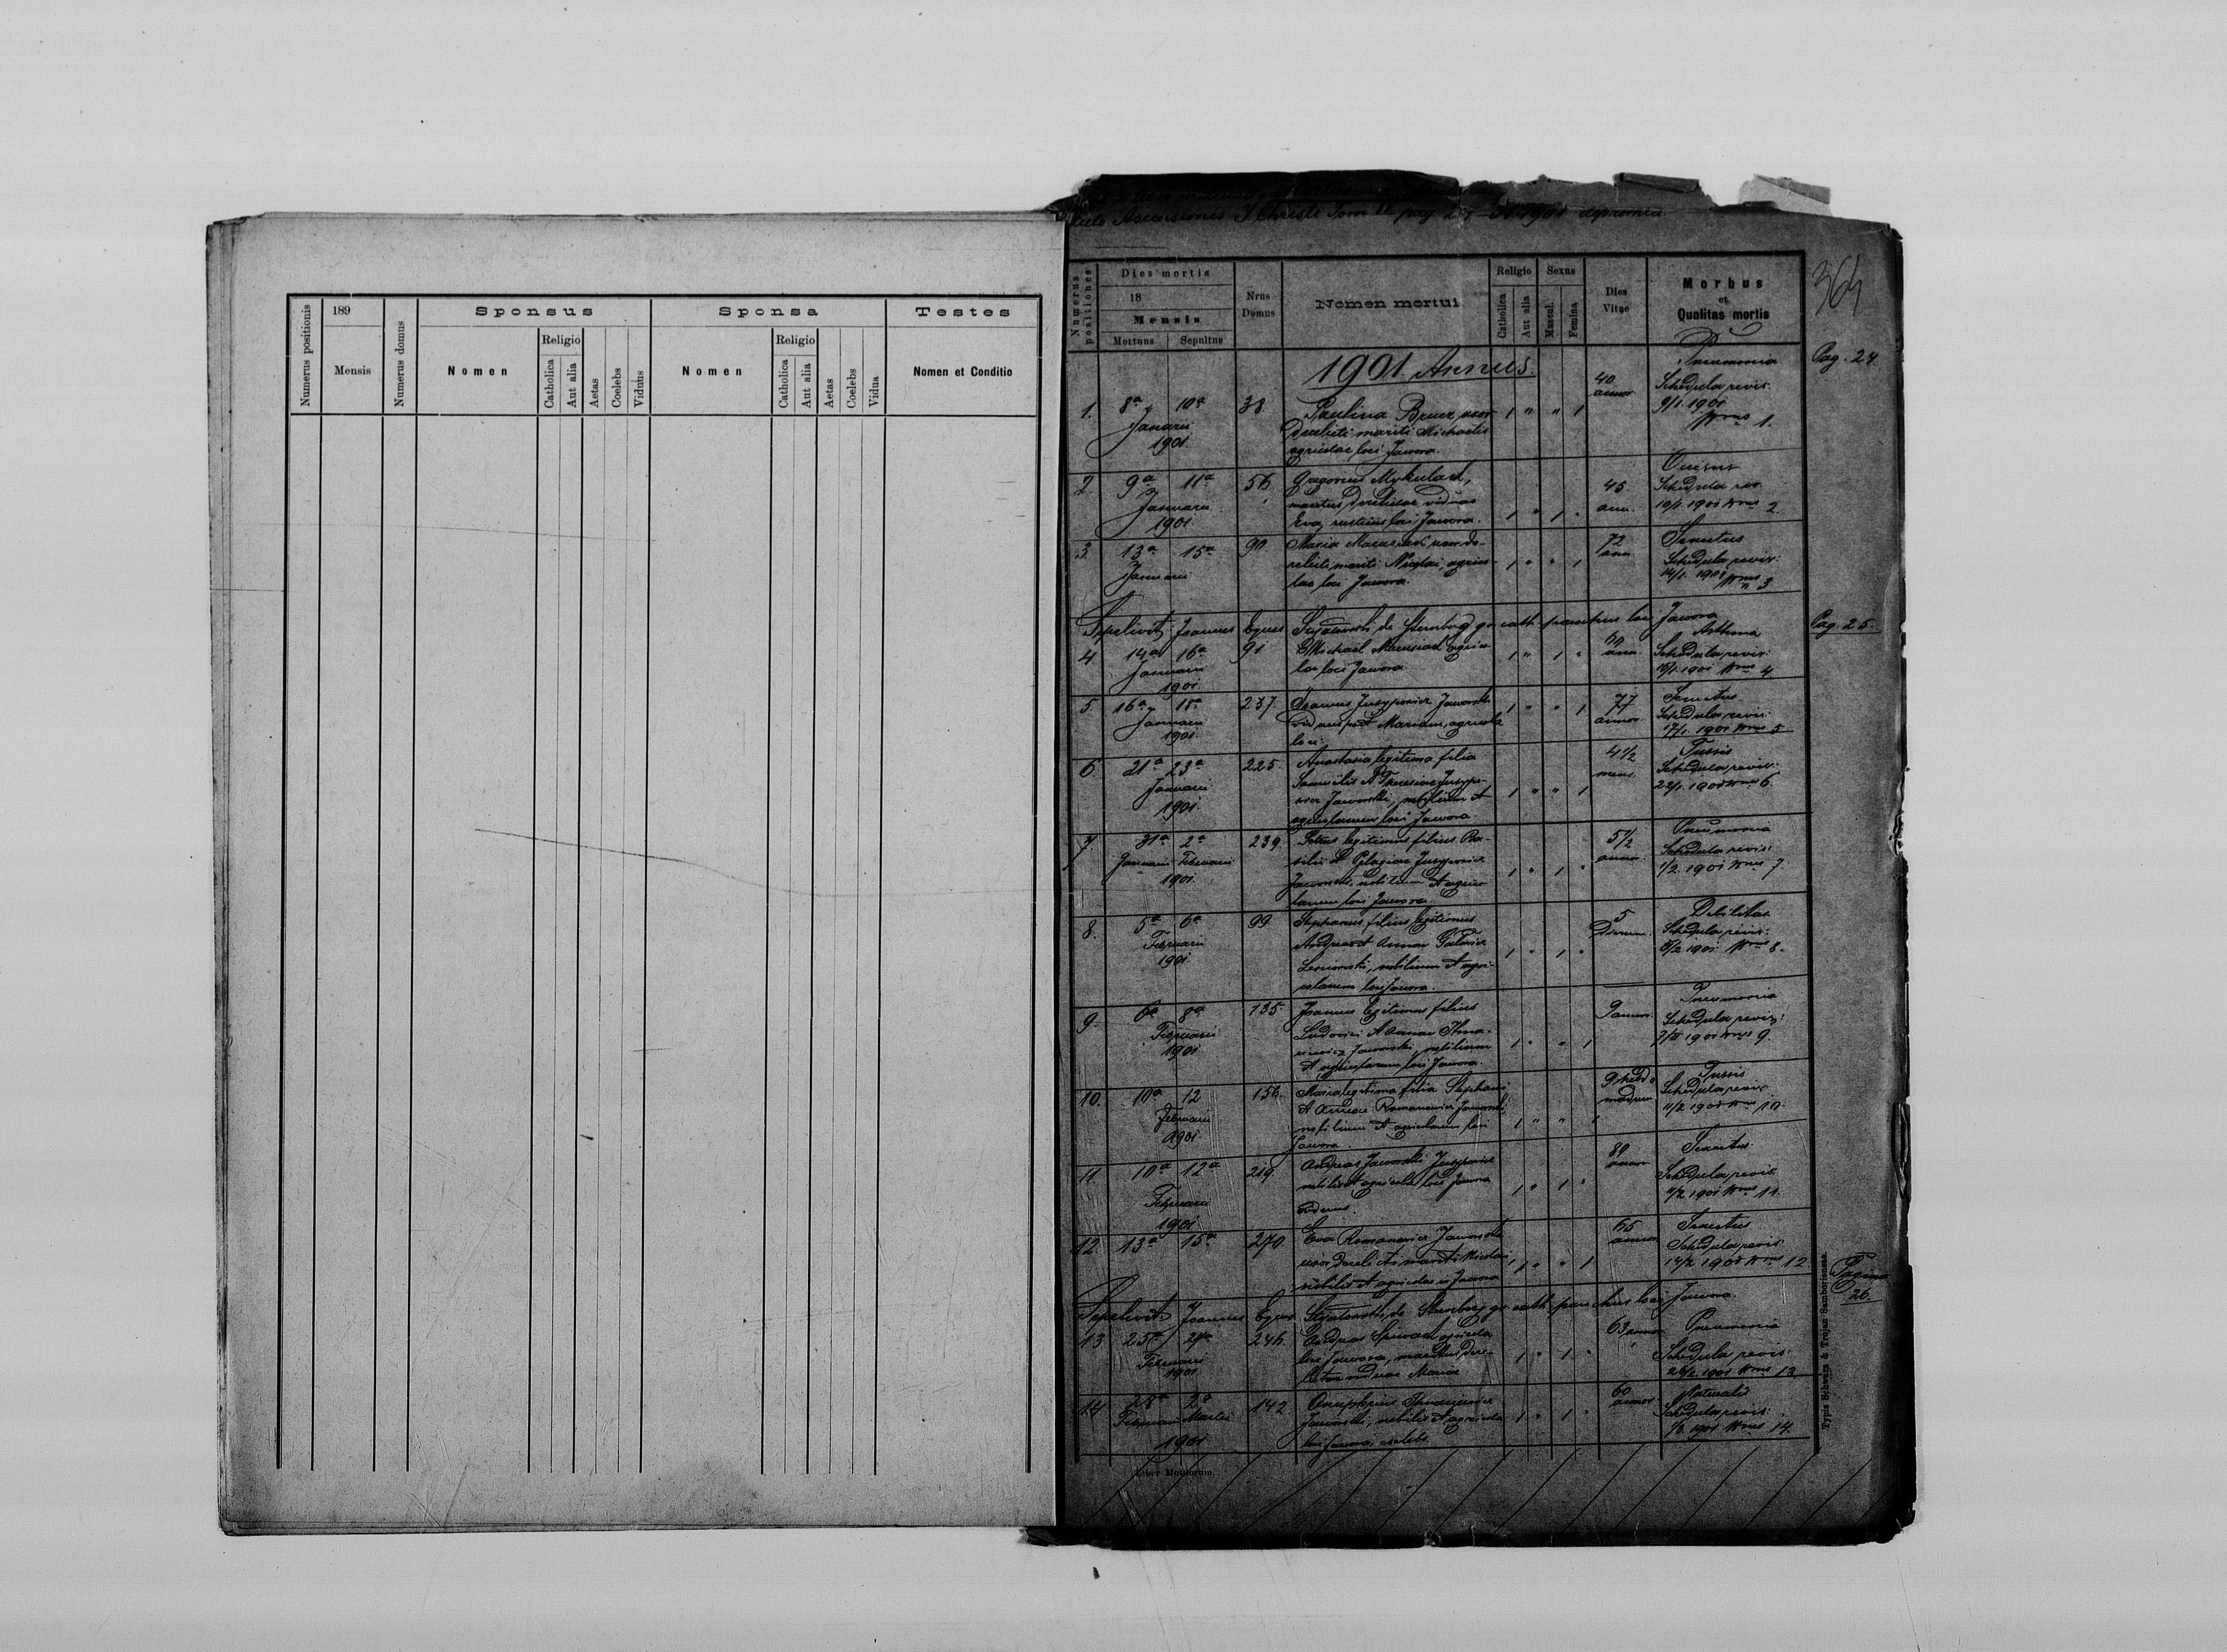 189
Numerus positionis
Mensis
Numerus domus
Sponsus
Nomen
Religio
Catholica
Aut alia
Aetas
Coelebs
Viduus
Sponsa
Nomen
Religio
Catholica
Aut alia
Aetas
Coelebs
Vidua
Testes
Nomen et Conditio
Ascensionis J. Christi Tom II pag 1901
Numerus positiones
Dies mortis
18
Mensis
Mortuus Sepultus
Nrus Domus
Nomen mortui
Religio
Catholica
Aut alia
Sexus
Mascul.
Femina
Dies Vitae
Morbus
et
Qualitas mortis
364
Pag. 24.
1901 Annus.
1. 8a 10a 38. Paulina uxor 1 " " 1 40 annor Pneumonia
Januarii derelicti mariti Michaelis Schedula revis.
1901 agricolae loci Jawora. 9/1. 1901 Nrus 1.
2. 9a 11a 56. Gregorius Mykulad,
Januarii maritus viduae 45 ann. Schedula rev.
1901 Eva, rusticus loci Jawora. 1 " 1 " 10/1. 1901 Nrus 2
3. 13a 15a 90 Maria uxor de- 72 ann Senectus
Januarii relicti mariti Nicolai, agrico- 1 " " 1 Schedula revis:
lae loci Jawora. 14/1. 1901 Nrus 3
Sepelivit Joannes Eques de Sternberg gr. cath. parochus loci Jawora
Pag. 25.
4 14a 16a 91 Michael agrico- 1 " 1 " ann. Asthma
Januarii la loci Jawora. Schedula revis:
1901 1901 Nrus 4
5. 16a 18a 237. Joannes Jusypowicz Jaworski 1 " " 1 77 annor Senectus
Januarii viduus post Mariam, agricola Schedula revis:
1901 loci 17/1. 1901 Nrus 5
6. 21a 23a 225. Anastasia legitima filia 4 1/2 mens. Tussis
Januarii Samuelis et Theresiae Jusypo- Schedula revis:
1901 wicz Jaworski, nobilium et 1 " " 1 22/1. 1901 Nrus 6
agricolarum loci Jawora.
7. 31a 2a 239. Petrus legitimus filius Ba- 5 1/2 annor Pneumonia
Januarii Februarii silii et Pelagiae Jusypowicz Schedula revis:
1901 Jaworski, nobilium et agrico- 1 " 1 " 1/2. 1901 Nrus 7.
larum loci Jawora.
8. 5a 6a 99. Stephanus filius legitimus 5 Dierum. Debilitas
Februarii Andreae et Annae Schedula revis:
1901 nobilium et agri- 1 " 1 " 1901 Nrus 8.
colarum loci Jawora.
9. 6a 8a 135. Joannes legitimus filius 9 annor. Pneumonia
Februarii Ludovici et Annae Schedula revis:
1901 Jaworski, nobilium 1 " " 1 7/II 1901 Nrus 9.
et agricolarum loci Jawora.
10. 10a 12 156. Maria legitima filia Stephani 9 hebdo- Tussis
Februarii et Annae Romanowicz Jaworski, madum Schedula revis:
1901 nobilium et agricolarum loci 1 " " 1 11/2 1901 Nrus 10.
Jawora.
11. 10a 12a 219. Andreas Jaworski Jusypowicz 80 annor Senectus
Februarii nobilis et agricola loci Jawora 1 " 1 " Schedula revis.
1901 viduus. 11/2 1901 Nrus 11.
12. 13a 15a 270. Eva Romanowicz Jaworska 65 annor Senectus
uxor derelicti mariti Nicolai, 1 " " 1 Schedula revis.
nobilis et agricolae in Jawora 14/2 1901 Nrus 12.
Pagina 26.
Sepelivit Joannes Eques de Sternberg gr. cath. parochus loci Jawora.
13. 25a 246. Andreas agricola 63 annor Pneumonia
Februarii loci Jawora, maritus dere- 1 " 1 " Schedula revis.
1901 viduae Maria 1901 Nrus 13.
14. 28a 2a 142 Onuphrius 60 annor Naturalis
Februarii Martii Jaworski, nobilis et agricola 1 " 1 " Schedula revis.
1901 loci Jawora, coelebs. 1901 Nrus 14.
Liber Mortuorum.
Typis Schwarz & Trojan Samborianae.